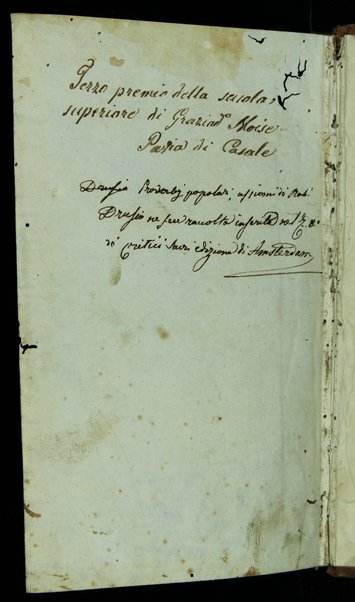 Terzo premio della scuola
superiore di Graziad.º Moise
Pavia di Casale
Drusio Proverbj popolari, assiomi di Rab.
Drusio ne fece raccolta inserita nel T. 8.
de' Critici Sacri edizione di Amsterdam